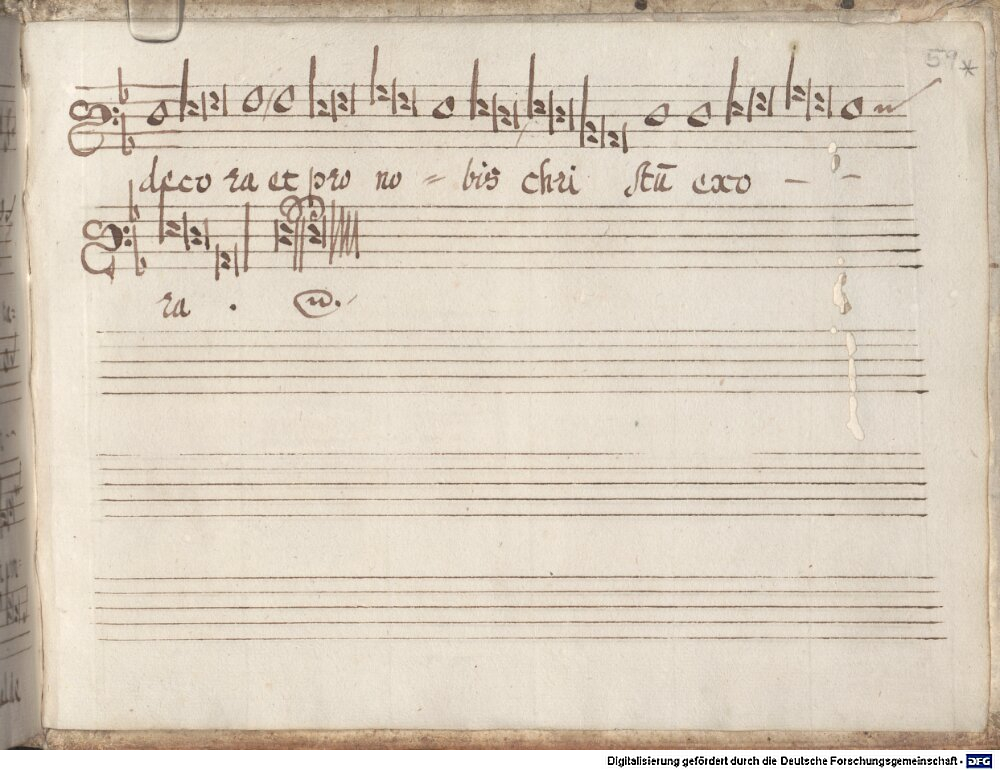 59*
deco ra et pro no = bis chri stū exo - -
ra .
Digitalisierung gefördert durch die Deutsche Forschungsgemeinschaft - DFG